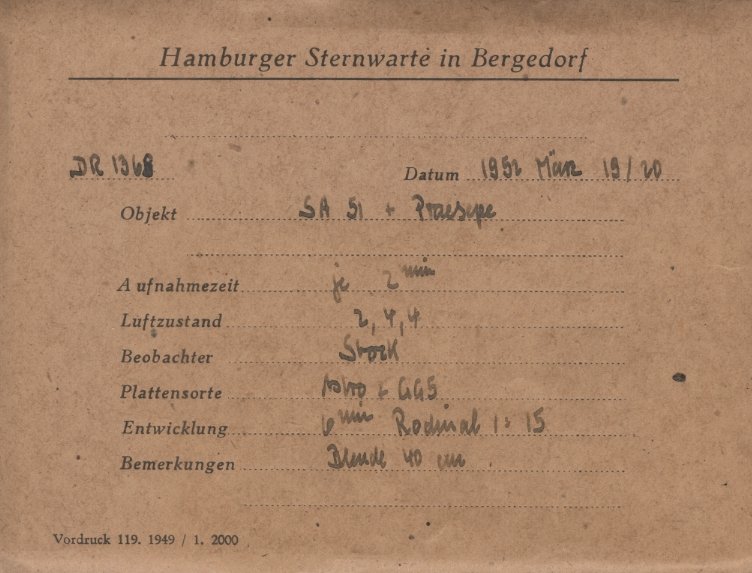 Hamburger Sternwarte in Bergedorf
DR 1368 Datum 1952 März 19/20
Objekt SA 51 + Praesepe
Aufnahmezeit je 2 min
Luftzustand 2, 4, 4
Beobachter Stock
Plattensorte Astro + GG5
Entwicklung 6 min Rodinal 1:15
Bemerkungen Blende 40 cm
Vordruck 119. 1949 / 1. 2000